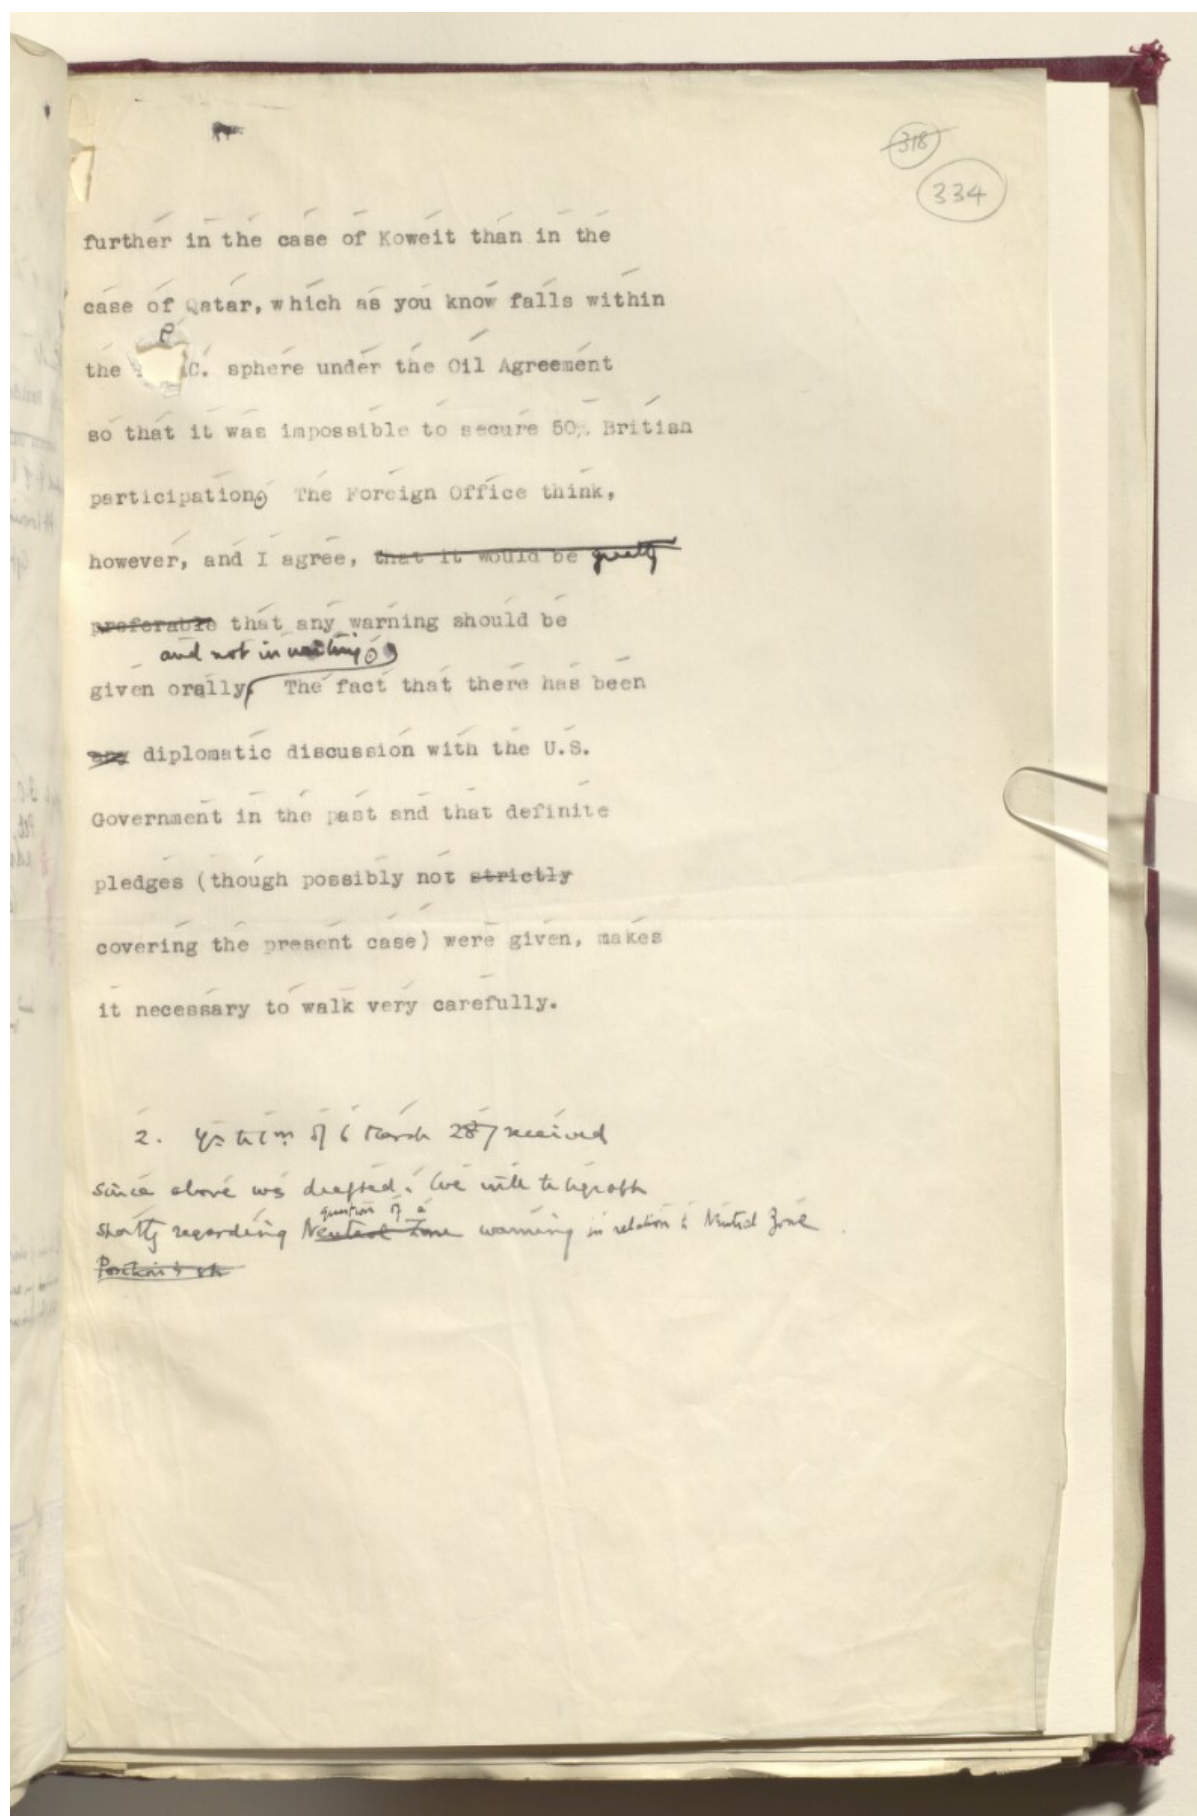 318
334
further in the case of Koweit than in the
case of Qatar, which as you know falls within
the C. sphere under the Oil Agreement
so that it was impossible to secure 50% British
participation. The Foreign Office think,
however, and I agree, that it would be greatly
preferable that any warning should be
and not in writing.
given orally, The fact that there has been
any diplomatic discussion with the U.S.
Government in the past and that definite
pledges (though possibly not strictly
covering the present case) were given, makes
it necessary to walk very carefully.
2. of 6 March 287 received
since above was drafted. We will telegraph
question of a
shortly regarding Neutral Zone warning in relation to Neutral Zone